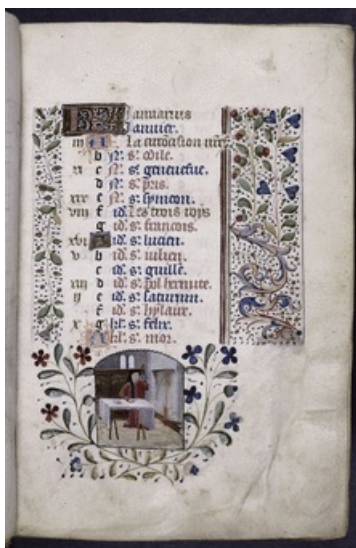 KL Januarius
Janvier.
iii A La circoncision nrẽ
b N. s. odile.
xi c N. s. geneuefue.
d N. s. pris.
xix e N. s. symeon.
viii f id. Les trois roys
g id. s. francois.
xvi A id. s. lucien.
v b id. s. iulien.
c id. s. guille.
xiii d id. s. pol hermite.
ii e id. s. saturnin.
f id. s. hylaire.
x g kl. s. felix.
A kl. s. mor.